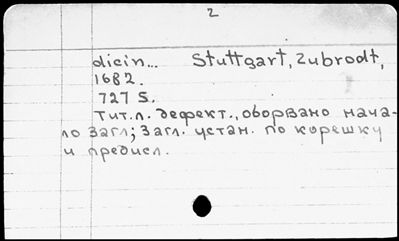 2
dicin... Stuttgart, Zubrodt,
1682.
727 S.
Тит.л. дефект., оборвано нача-
ло загл; Загл. устан. по корешку
и предисл.